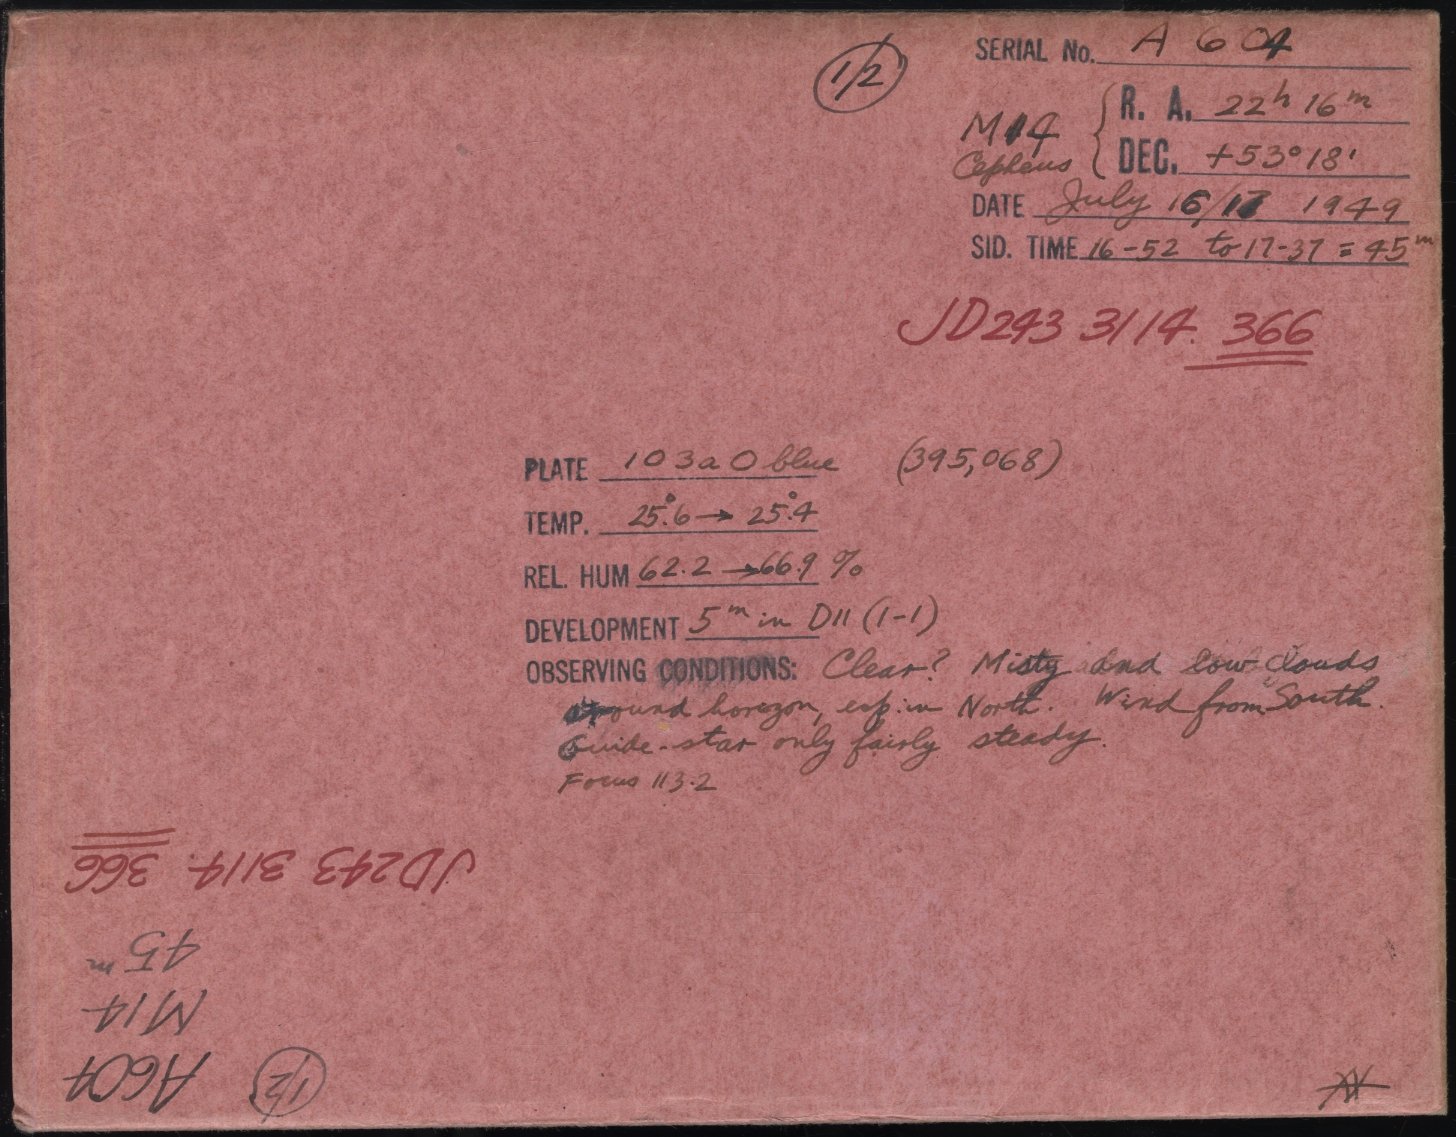 1/2
SERIAL No. A 604
M14 Cepheus
R. A. 22h 16m
DEC. +53° 18'
DATE July 16/17 1949
SID. TIME 16-52 to 17-37 = 45m
JD243 3114. 366
PLATE 103a O blue (395,068)
TEMP. 25°.6 → 25°.4
REL. HUM 62.2 → 66.9 %
DEVELOPMENT 5m in D11 (1-1)
OBSERVING CONDITIONS: Clear? Misty and low clouds
around horizon, esp. in North. Wind from South.
Guide-star only fairly steady.
Focus 113.2
JD243 3114. 366
45m
M14
A604
1/2